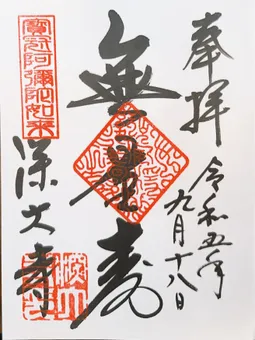 奉拝
令和五年
九月十八日
無量寿
寶冠阿彌陀如来
深大寺